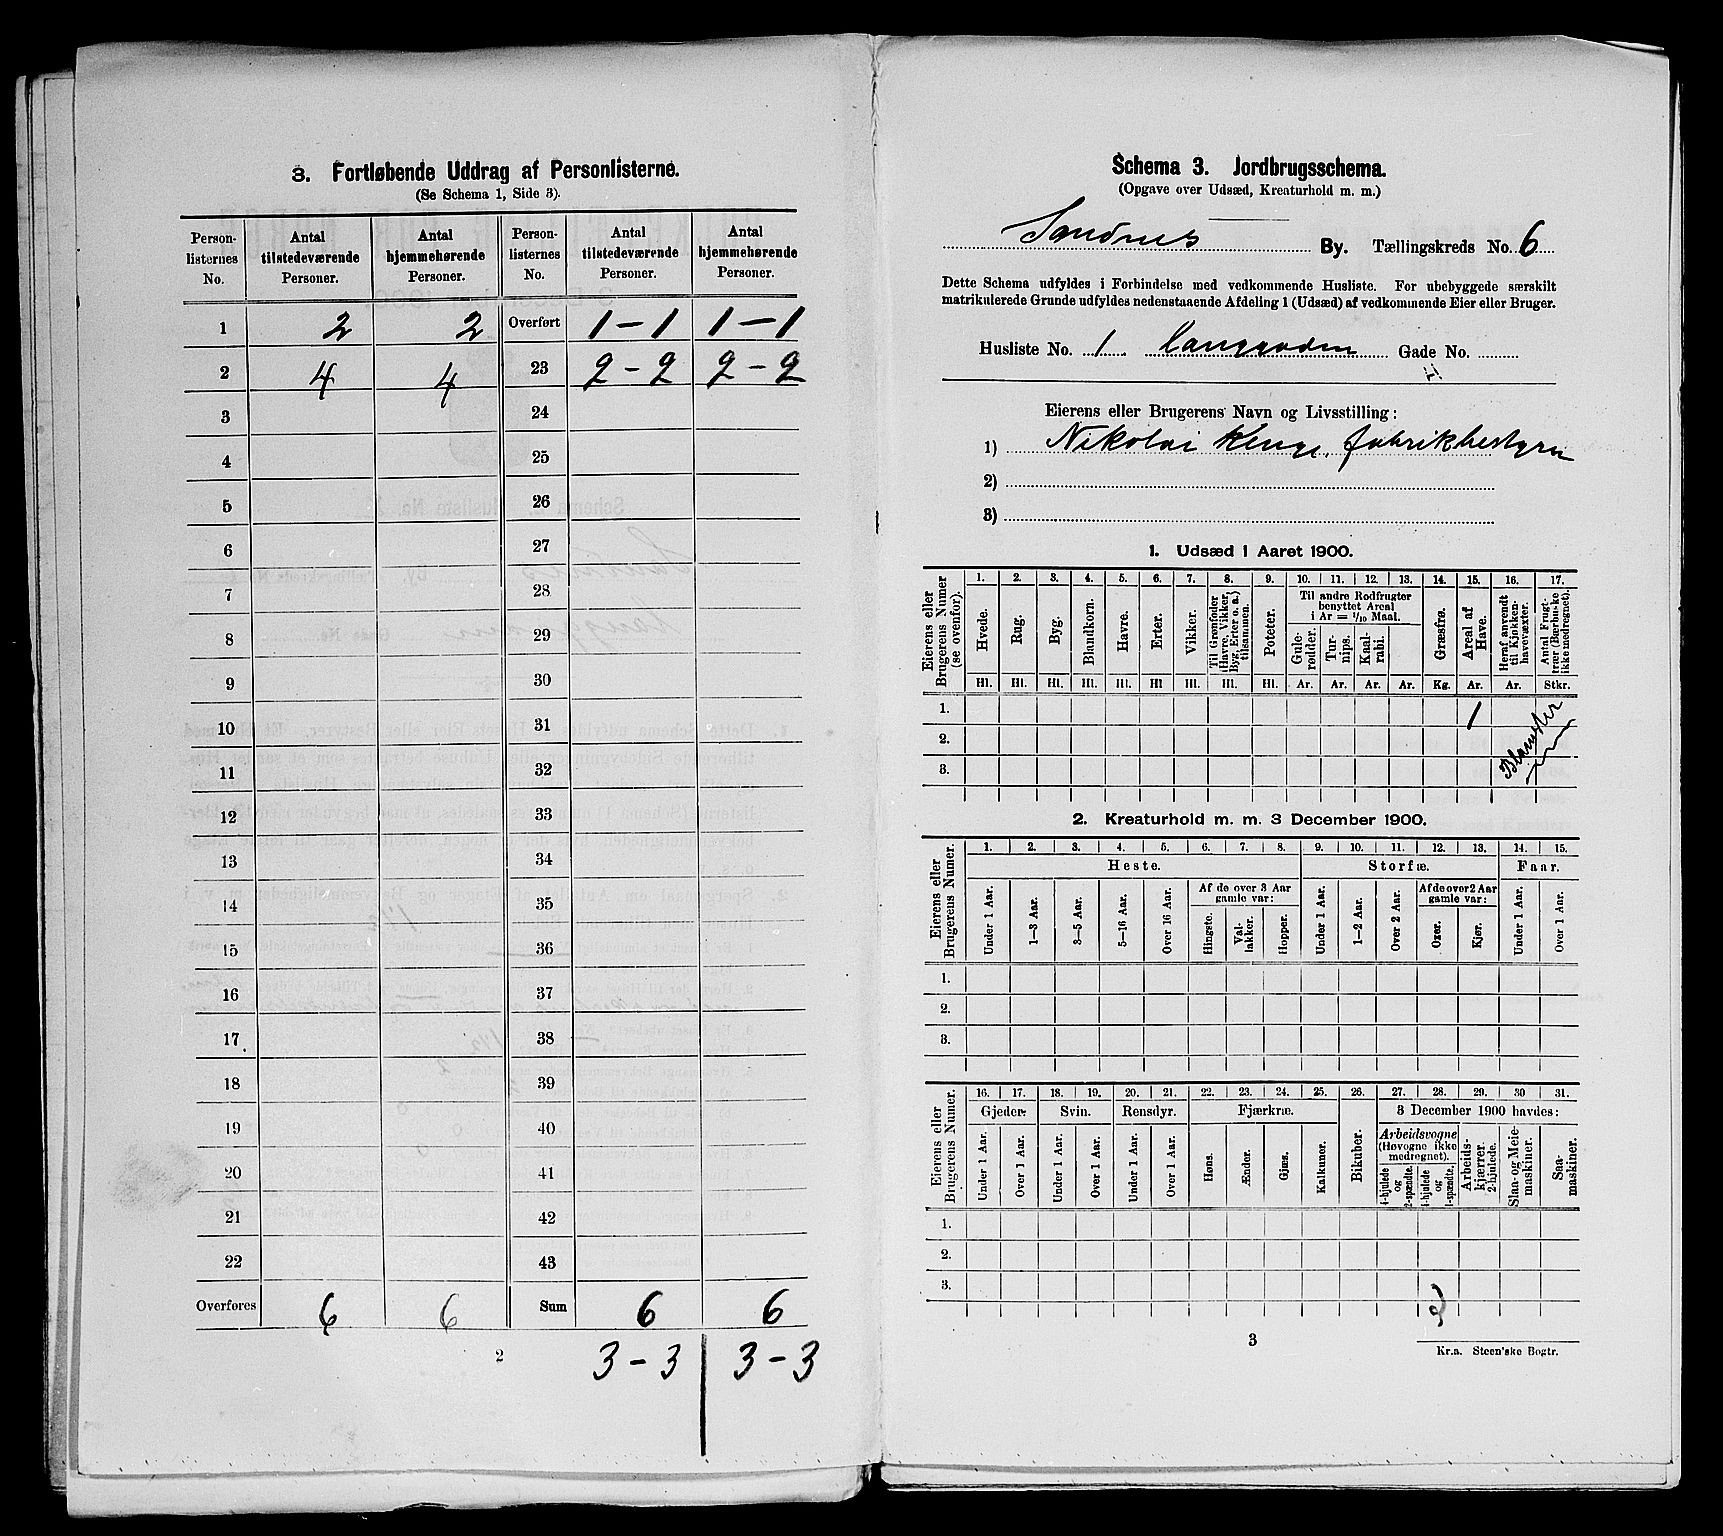 3. Fortløbende Uddrag af Personlisterne.
(Se Schema 1, Side 3).
Person-listernes No. Antal tilstedeværende Personer. Antal hjemmehørende Personer. Person-listernes No. Antal tilstedeværende Personer. Antal hjemmehørende Personer.
1 2 2 Overført 1-1 1-1
2 4 4 23 2-2 2-2
3 24
4 25
5 26
6 27
7 28
8 29
9 30
10 31
11 32
12 33
13 34
14 35
15 36
16 37
17 38
18 39
19 40
20 41
21 42
22 43
Overføres 6 6 Sum 6 6
3-3 3-3
2
Schema 3. Jordbrugsschema.
(Opgave over Udsæd, Kreaturhold m. m.)
Sandnes By. Tællingskreds No. 6
Dette Schema udfyldes i Forbindelse med vedkommende Husliste. For ubebyggede særskilt
matrikulerede Grunde udfyldes nedenstaaende Afdeling 1 (Udsæd) af vedkommende Eier eller Bruger.
Husliste No. 1. Langgaden Gade No.
Eierens eller Brugerens Navn og Livsstilling:
1) Nikolai fabrikbestyrer
2)
3)
1. Udsæd i Aaret 1900.
Eierens eller Brugerens Numer (se ovenfor).
1. 2. 3. 4. 5. 6. 7. 8. 9. 10. 11. 12. 13. 14. 15. 16. 17.
Hvede. Rug. Byg. Blandkorn. Havre. Erter. Vikker. Til Grønfoder Havre, Vikker, Byg, Erter o. a.) tilsammen. Poteter.
Til andre Rodfrugter benyttet Areal i Ar = 1/10 Maal.
Gule-rødder. Tur-nips. Kaal-rabi. Græsfrø. Areal af Have. Heraf anvendt til Kjøkken-havevæxter. Antal Frugt-trær (Bærbuske ikke medregnet).
Hl. Hl. Hl. Hl. Hl. Hl Hl. Hl. Hl. Ar. Ar. Ar. Ar. Kg. Ar. Ar. Stkr.
1. 1
2.
3.
Blomster
2. Kreaturhold m. m. 3 December 1900.
Eierens eller Brugerens Numer.
1. 2. 3. 4. 5. 6. 7. 8. 9. 10. 11. 12. 13. 14. 15.
Heste. Storfæ. Faar.
Under 1 Aar. 1—3 Aar. 3—5 Aar. 5—16 Aar. Over 16 Aar. Af de over 3 Aar gamle var: Hingste. Val-lakker. Hopper. Under 1 Aar. 1—2 Aar. Over 2 Aar. Af de over 2 Aar gamle var: Oxer. Kjør. Under 1 Aar. Over 1 Aar.
1.
2.
3.
Eierens eller Brugerens Numer.
16. 17. 18. 19. 20. 21. 22. 23. 24. 25. 26. 27. 28. 29. 30 31.
Gjeder. Svin. Rensdyr. Fjærkræ. Bikuber. 3 December 1900 havdes:
Under 1 Aar. Over 1 Aar. Under 1 Aar. Over 1 Aar. Under 1 Aar. Over 1 Aar. Høns. Ænder. Gjæs. Kalkuner.
Arbeidsvogne (Høvogne ikke medregnet).
4-hjulede og 2-spændte. 4-hjulede og 1-spændte. Arbeids-kjærrer. 2-hjulede. Slaa- og Meie-maskiner. Saa-maskiner.
1.
2.
3.
3
Kr.a. Steen'ske Bogtr.